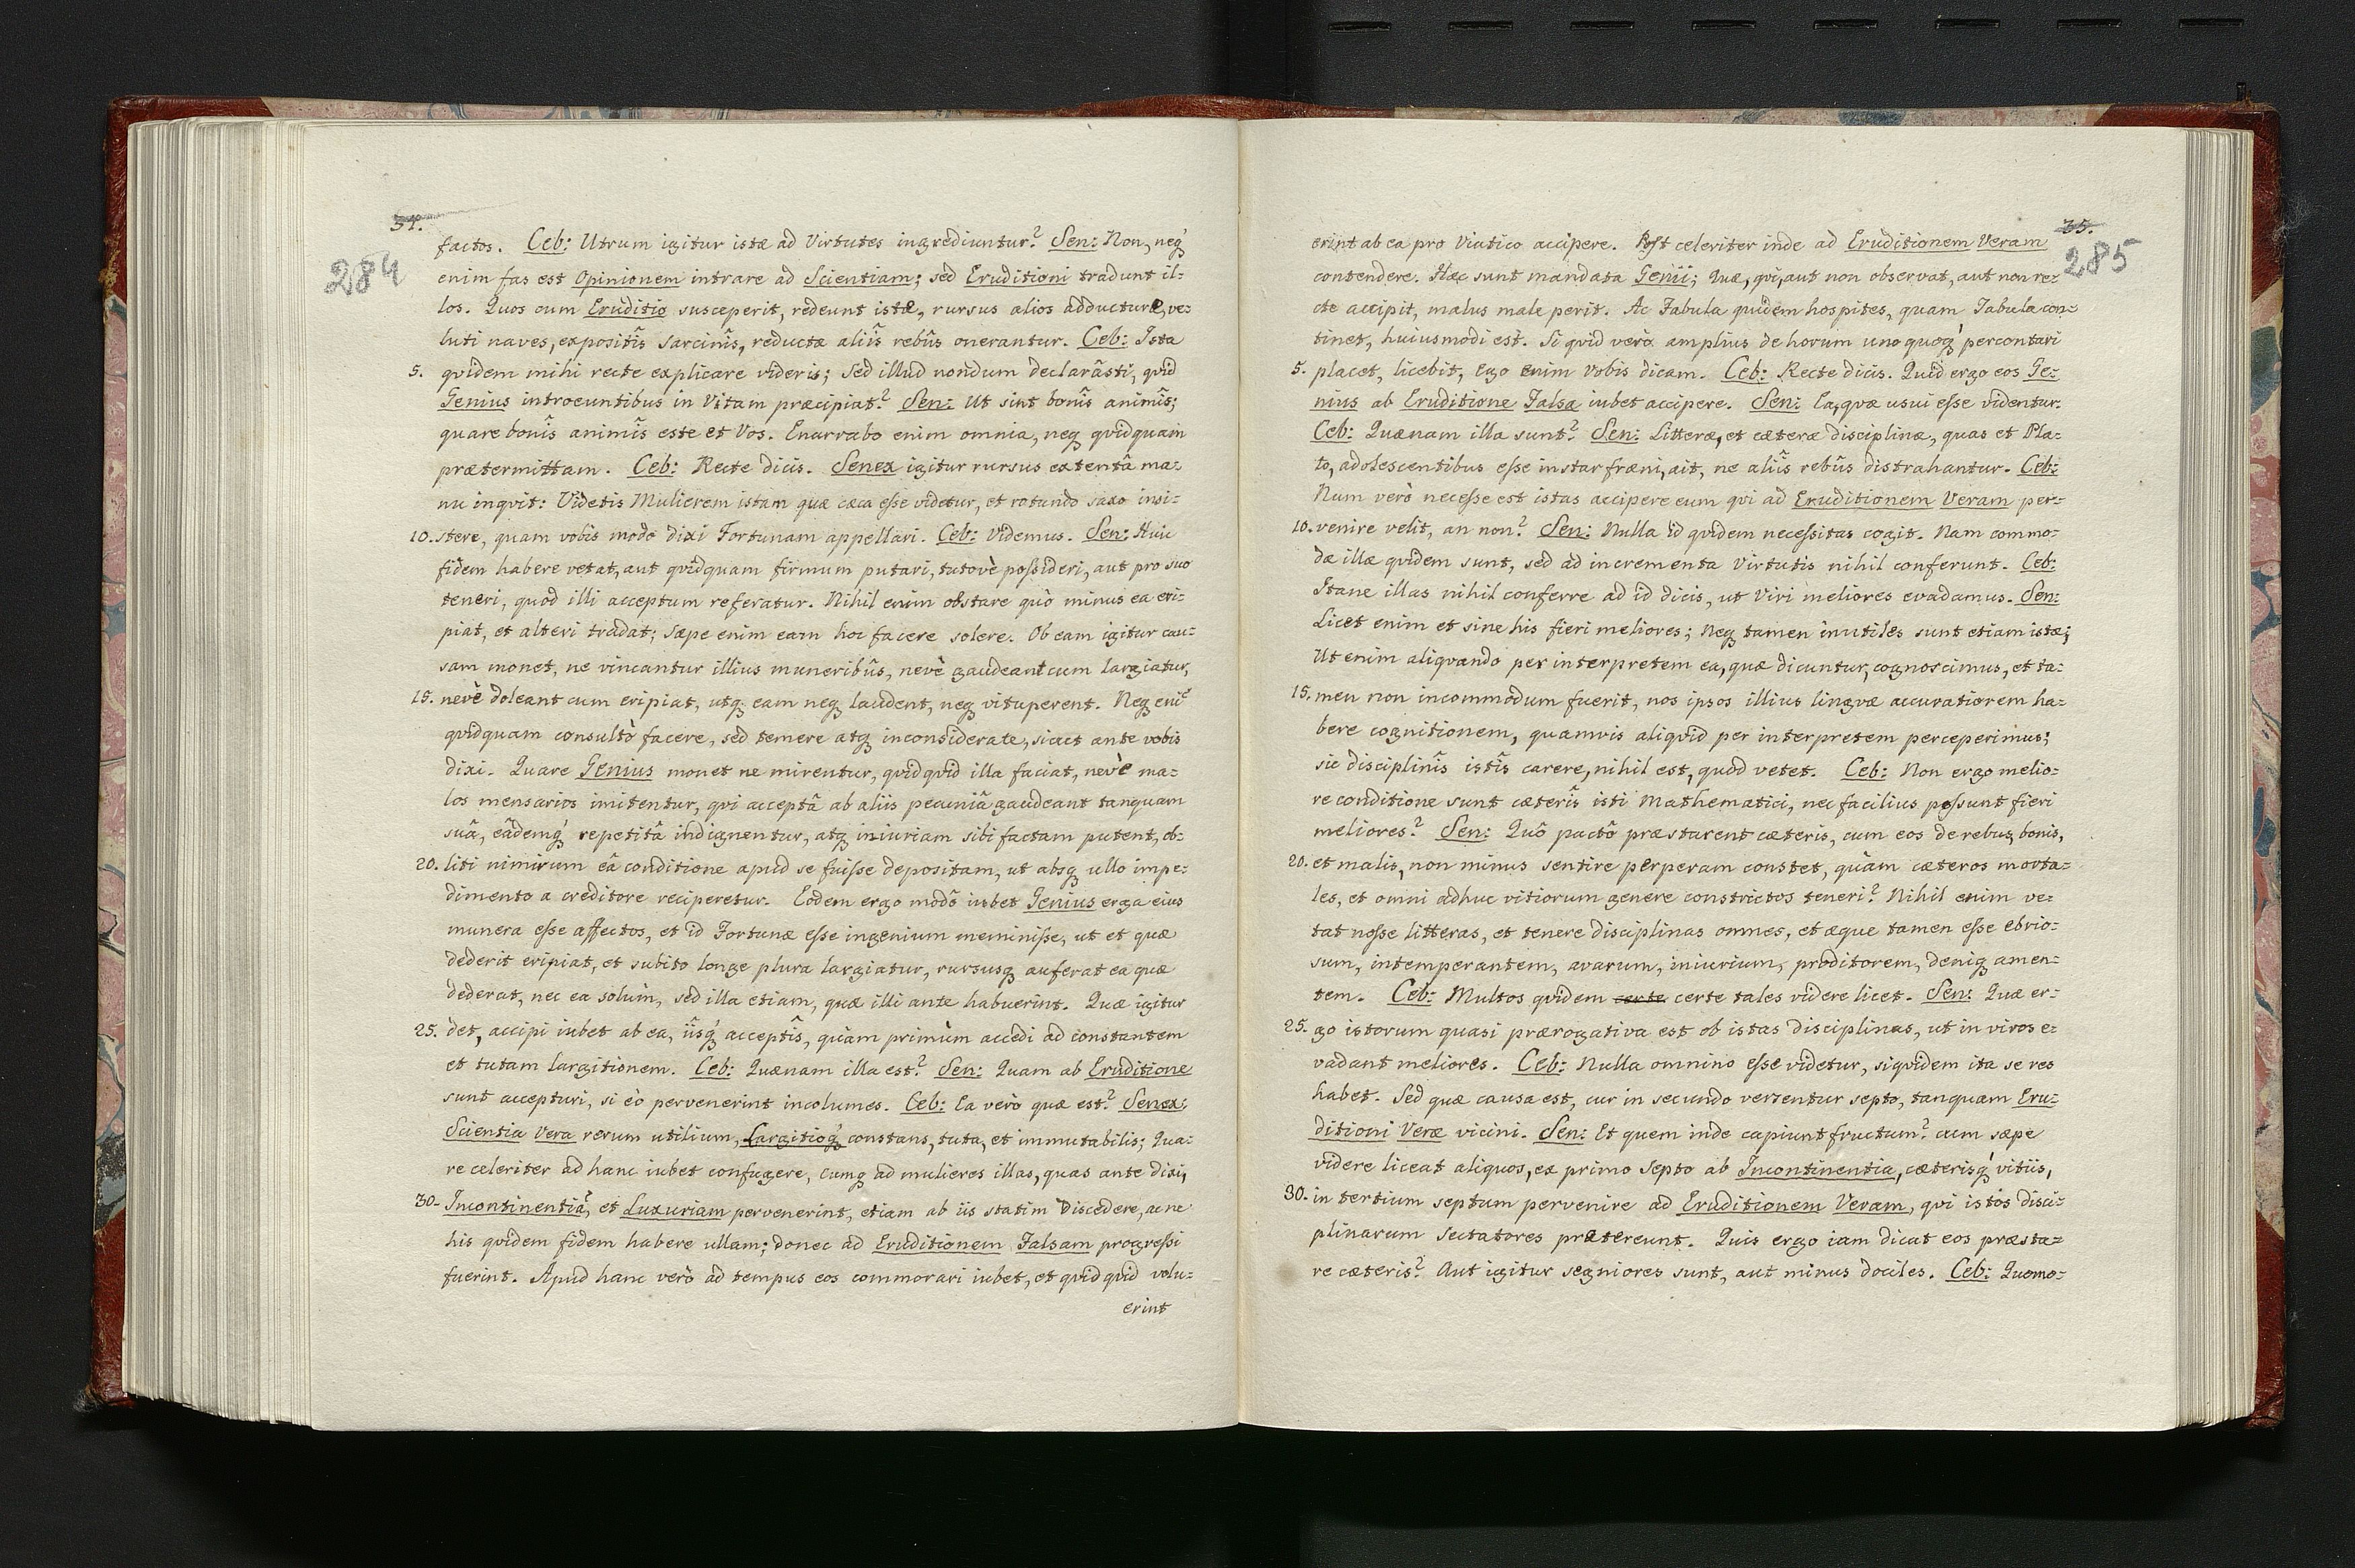 34.
284
factos. Ceb: Utrum igitur istæ ad Virtutes ingrediuntur? Sen: Non, neq́
enim fas est Opinionem intrare ad Scientiam; sed Eruditioni tradunt il-
los. Quos cum Eruditio susceperit, redeunt istæ, rursus alios adducturæ, ve-
luti naves, expositîs sarcinîs, reductæ aliîs rebûs onerantur. Ceb: Ista
5. qvidem mihi recte explicare videris; sed illud nondum declarâsti, qvid
Genius introeuntibus in Vitam præcipiat? Sen: Ut sint bonîs animîs;
quare bonîs animîs este et Vos. Enarrabo enim omnia, neq qvidquam
prætermittam. Ceb: Recte dicis. Senex igitur rursus extentâ ma-
nu inqvit: Videtis Mulierem istam quæ cæca eſse videtur, et rotundo saxo insi-
10. stere, quam vobis modo dixi Fortunam appellari. Ceb: Videmus. Sen: Huic
fidem habere vetat, aut qvidquam firmum putari, tutovè poſsideri, aut pro suo
teneri, quod illi acceptum referatur. Nihil enim obstare quò minus ea eri-
piat, et alteri tradat; sæpe enim eam hoc facere solere. Ob eam igitur cau-
sam monet, ne vincantur illius muneribûs, nevè gaudeant cum largiatur,
15. nevè doleant cum eripiat, utq eam neq laudent, neq vituperent. Neq enī
qvidquam consultò facere, sed temere atq inconsiderate, sicut ante vobis
dixi. Quare Genius monet ne mirentur, qvidqvid illa faciat, nevè ma-
los mensarios imitentur, qvi acceptâ ab aliis pecuniâ gaudeant tanquam
suâ, eâdemq́ repetitâ indignentur, atq iniuriam sibi factam putent, ob-
20. liti nimirum eâ conditione apud se fuiſse depositam, ut absq ullo impe-
dimento a creditore reciperetur. Eodem ergo modô iubet Genius erga eius
munera eſse affectos, et id Fortunæ eſse ingenium meminiſse, ut et quæ
dederit eripiat, et subito longe plura largiatur, rursusq auferat ea quæ
dederat, nec ea solùm, sed illa etiam, quæ illi ante habuerint. Quæ igitur
25. det, accipi iubet ab ea, iîsq́ acceptîs, quàm primùm accedi ad constantem
et tutam largitionem. Ceb: Quænam illa est? Sen: Quam ab Eruditione
sunt accepturi, si eò pervenerint incolumes. Ceb: Ea verò quæ est? Senex:
Scientia Vera rerum utilium, Largitioq́ constans, tuta, et immutabilis; Qua-
re celeriter ad hanc iubet confugere, cumq ad mulieres illas, quas ante dixi,
30. Incontinentiā, et Luxuriam pervenerint, etiam ab iis statim discedere, ac ne
his qvidem fidem habere ullam; donec ad Eruditionem Falsam progreſsi
fuerint. Apud hanc verò ad tempus eos commorari iubet, et qvidqvid volu-
erint
35.
285
erint ab ea pro Viatico accipere. Post celeriter inde ad Eruditionem Veram
contendere. Hæc sunt mandata Genii; Quæ, qvi, aut non observat, aut non re-
cte accipit, malus male perit. Ac Fabula quidem hospites, quam Tabula con-
tinet, huiusmodi est. Si qvid verò amplius de horum uno quoq́ percontari
5. placet, licebit, Ego enim vobis dicam. Ceb: Recte dicis. Quid ergo eos Ge-
nius ab Eruditione Falsa iubet accipere. Sen: Ea, qvæ usui eſse videntur.
Ceb: Quænam illa sunt? Sen: Litteræ, et cæteræ disciplinæ, quas et Pla-
to, adolescentibus eſse instar fræni, ait, ne aliîs rebûs distrahantur. Ceb:
Num verò neceſse est istas accipere eum qvi ad Eruditionem Veram per-
10. venire velit, an non? Sen: Nulla id qvidem neceſsitas cogit. Nam commo-
dæ illæ qvidem sunt, sed ad incrementa Virtutis nihil conferunt. Ceb:
Itane illas nihil conferre ad id dicis, ut Viri meliores evadamus. Sen:
Licet enim et sine his fieri meliores; Neq tamen inutiles sunt etiam istæ;
Ut enim aliqvando per interpretem ea, quæ dicuntur, cognoscimus, et ta-
15. men non incommodum fuerit, nos ipsos illius lingvæ accuratiorem ha-
bere cognitionem, quamvis aliqvid per interpretem perceperimus;
sic disciplinîs istîs carere, nihil est, quod vetet. Ceb: Non ergo melio-
re conditione sunt cæterîs isti Mathematici, nec facilius poſsunt fieri
meliores? Sen: Quô pactô præstarent cæteris, cum eos de rebus bonis,
20. et malis, non minus sentire perperam constet, quàm cæteros morta-
les, et omni adhuc vitiorum genere constrictos teneri? Nihil enim ve-
tat noſse litteras, et tenere disciplinas omnes, et æque tamen eſse ebrio-
sum, intemperantem, avarum, iniurium, proditorem, deniq amen-
tem. Ceb: Multos qvidem certe certe tales videre licet. Sen: Quæ er-
25. go istorum quasi prærogativa est ob istas disciplinas, ut in viros e-
vadant meliores. Ceb: Nulla omnino eſse videtur, siqvidem ita se res
habet. Sed quæ causa est, cur in secundo versentur septo, tanquam Eru-
ditioni Veræ vicini. Sen: Et quem inde capiunt fructum? cum sæpe
videre liceat aliquos, ex primo septo ab Incontinentia, cæterisq́ vitiis,
30. in tertium septum pervenire ad Eruditionem Veram, qvi istos disci-
plinarum sectatores prætereunt. Quis ergo iam dicat eos præsta-
re cæteris? Aut igitur segniores sunt, aut minus dociles. Ceb: Quomo-